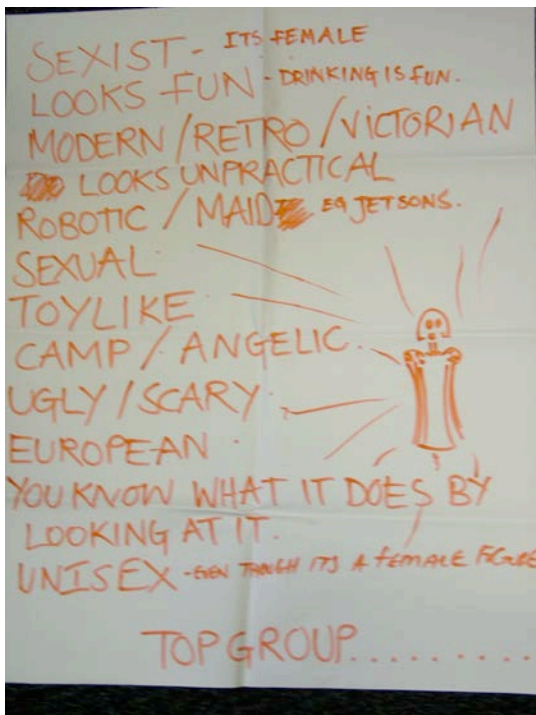 SEXIST - ITS FEMALE
LOOKS FUN - DRINKING IS FUN.
MODERN / RETRO / VICTORIAN
LOOKS UNPRACTICAL
ROBOTIC / MAID EG JETSONS.
SEXUAL
TOYLIKE
CAMP / ANGELIC
UGLY / SCARY
EUROPEAN
YOU KNOW WHAT IT DOES BY
LOOKING AT IT.
UNISEX - EVEN THOUGH ITS A FEMALE FIGURE
TOP GROUP..........